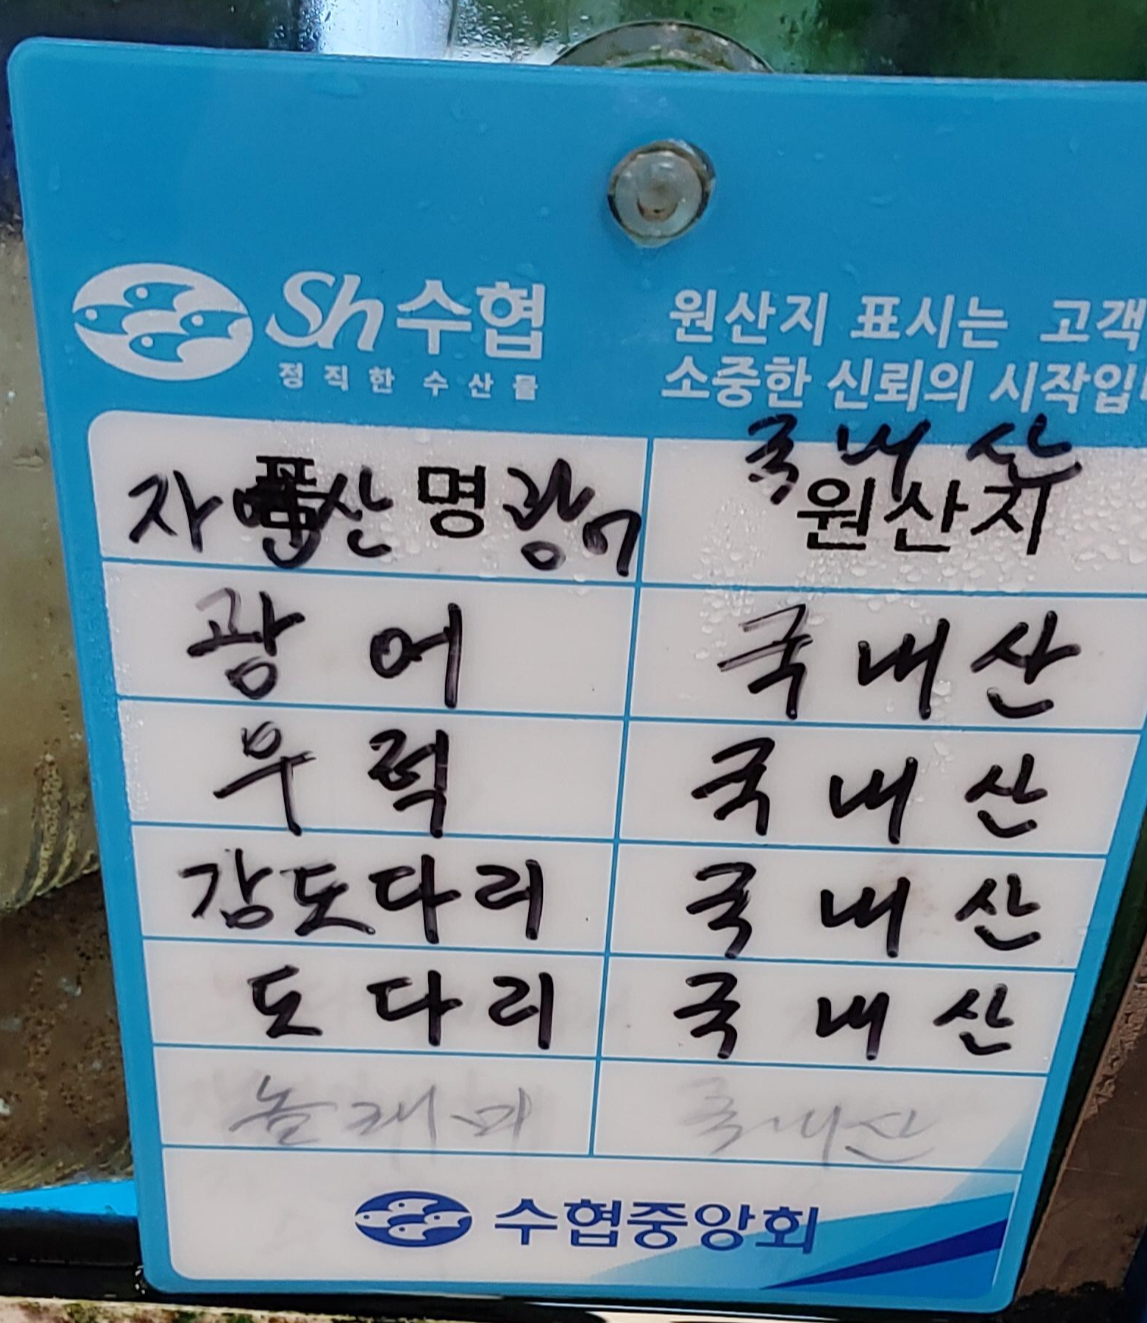 Sh수협
정직한 수산물
원산지 표시는 고객
소중한 신뢰의 시작입
국내산
자 산 광어
품명 원산지
광어 국내산
우럭 국내산
감도다리 국내산
도다리 국내산
놀래미 국내산
수협중앙회